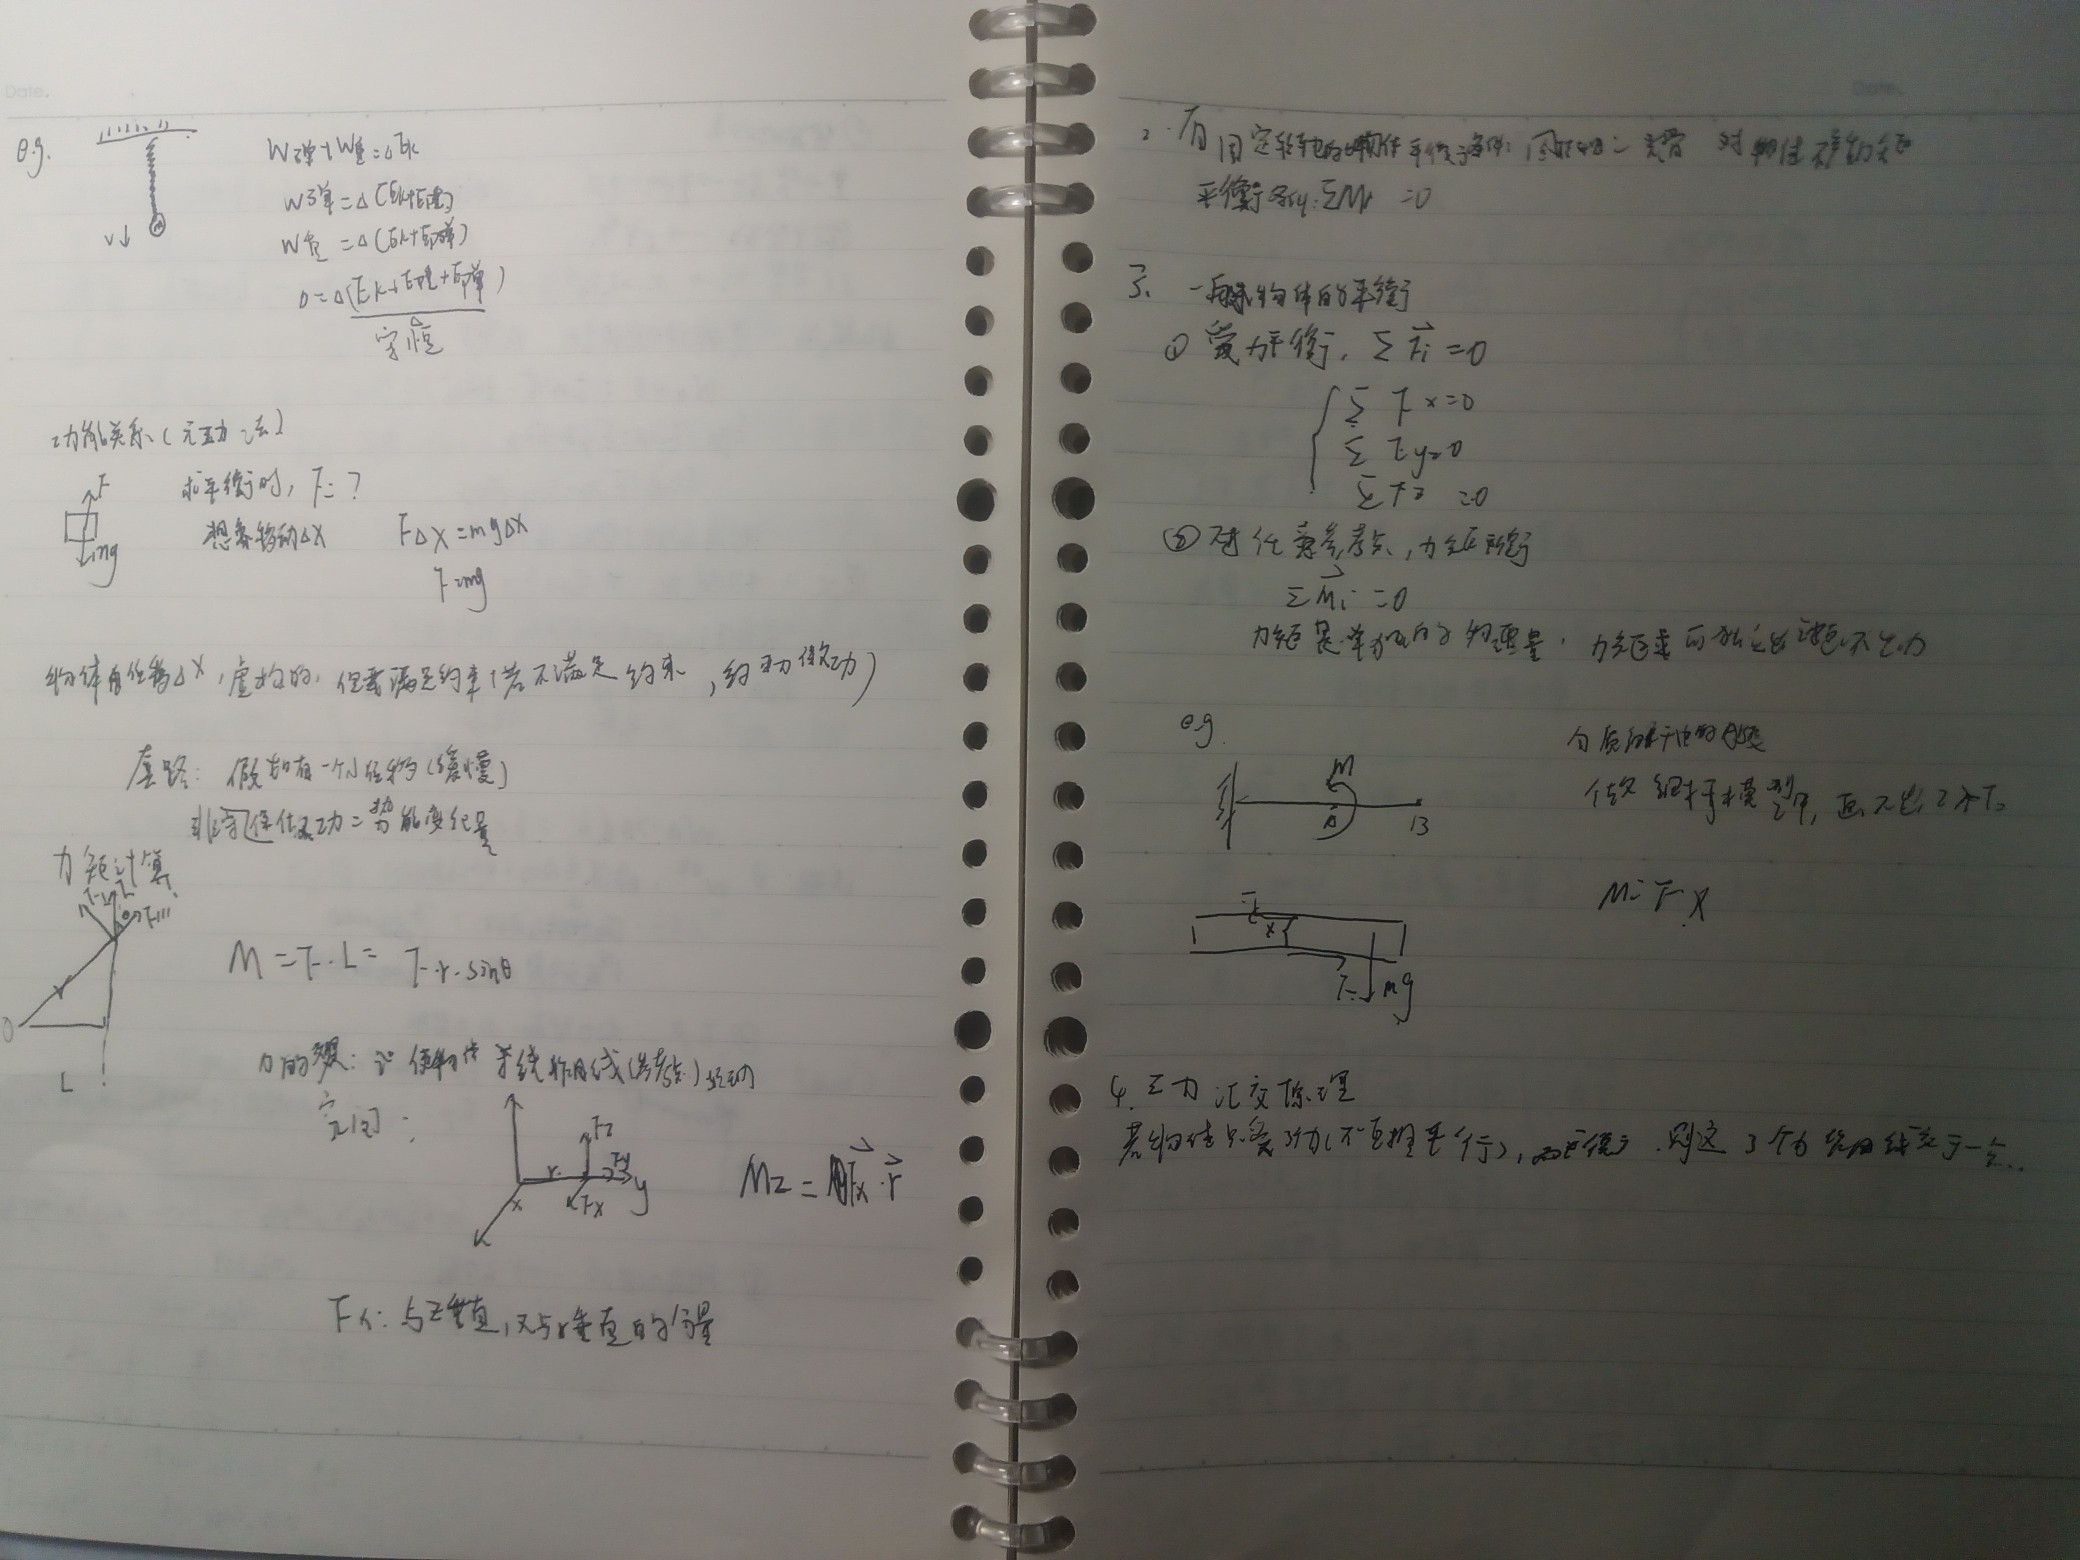 Date.
e.g.
W弹+W重=ΔEk
W弹=Δ(Ek+E重)
W重=Δ(Ek+E弹)
0=Δ(Ek+E重+E弹)
守恒
v↓
m
功能关系(元功法)
F
mg
求平衡时, F=?
想象移动Δx FΔx=mgΔx
F=mg
物体有位移Δx,虚拟的,但要满足约束(若不满足约束,约力做功)
套路:假如有一个小位移(缓慢)
非保守做功=势能变化量
力矩计算
M=F·L= F·r·sinθ
O
L
力的效果:使物体 作用线(参考点)转动
空间:
Fz
Fy
r
Fx
x
y
Mz=Fx·r
F:与z垂直,又与r垂直的分量
Date.
2.有固定转轴的物体平衡条件: 对物体 力矩
平衡条件:ΣMi=0
3. 一般物体的平衡
① 受力平衡, ΣFi=0
ΣFx=0
ΣFy=0
ΣFz=0
② 对任意参考点,力矩平衡
ΣMi=0
力矩是单独的物理量,力矩 可独立出现
e.g.
M
A
B
介质 的
做 细杆模型中,画不出2个F
M=F·x
F
x
F
mg
4.三力汇交原理
若物体只受3力(不互相平行), 平衡,则这3个力作用线交于一点.